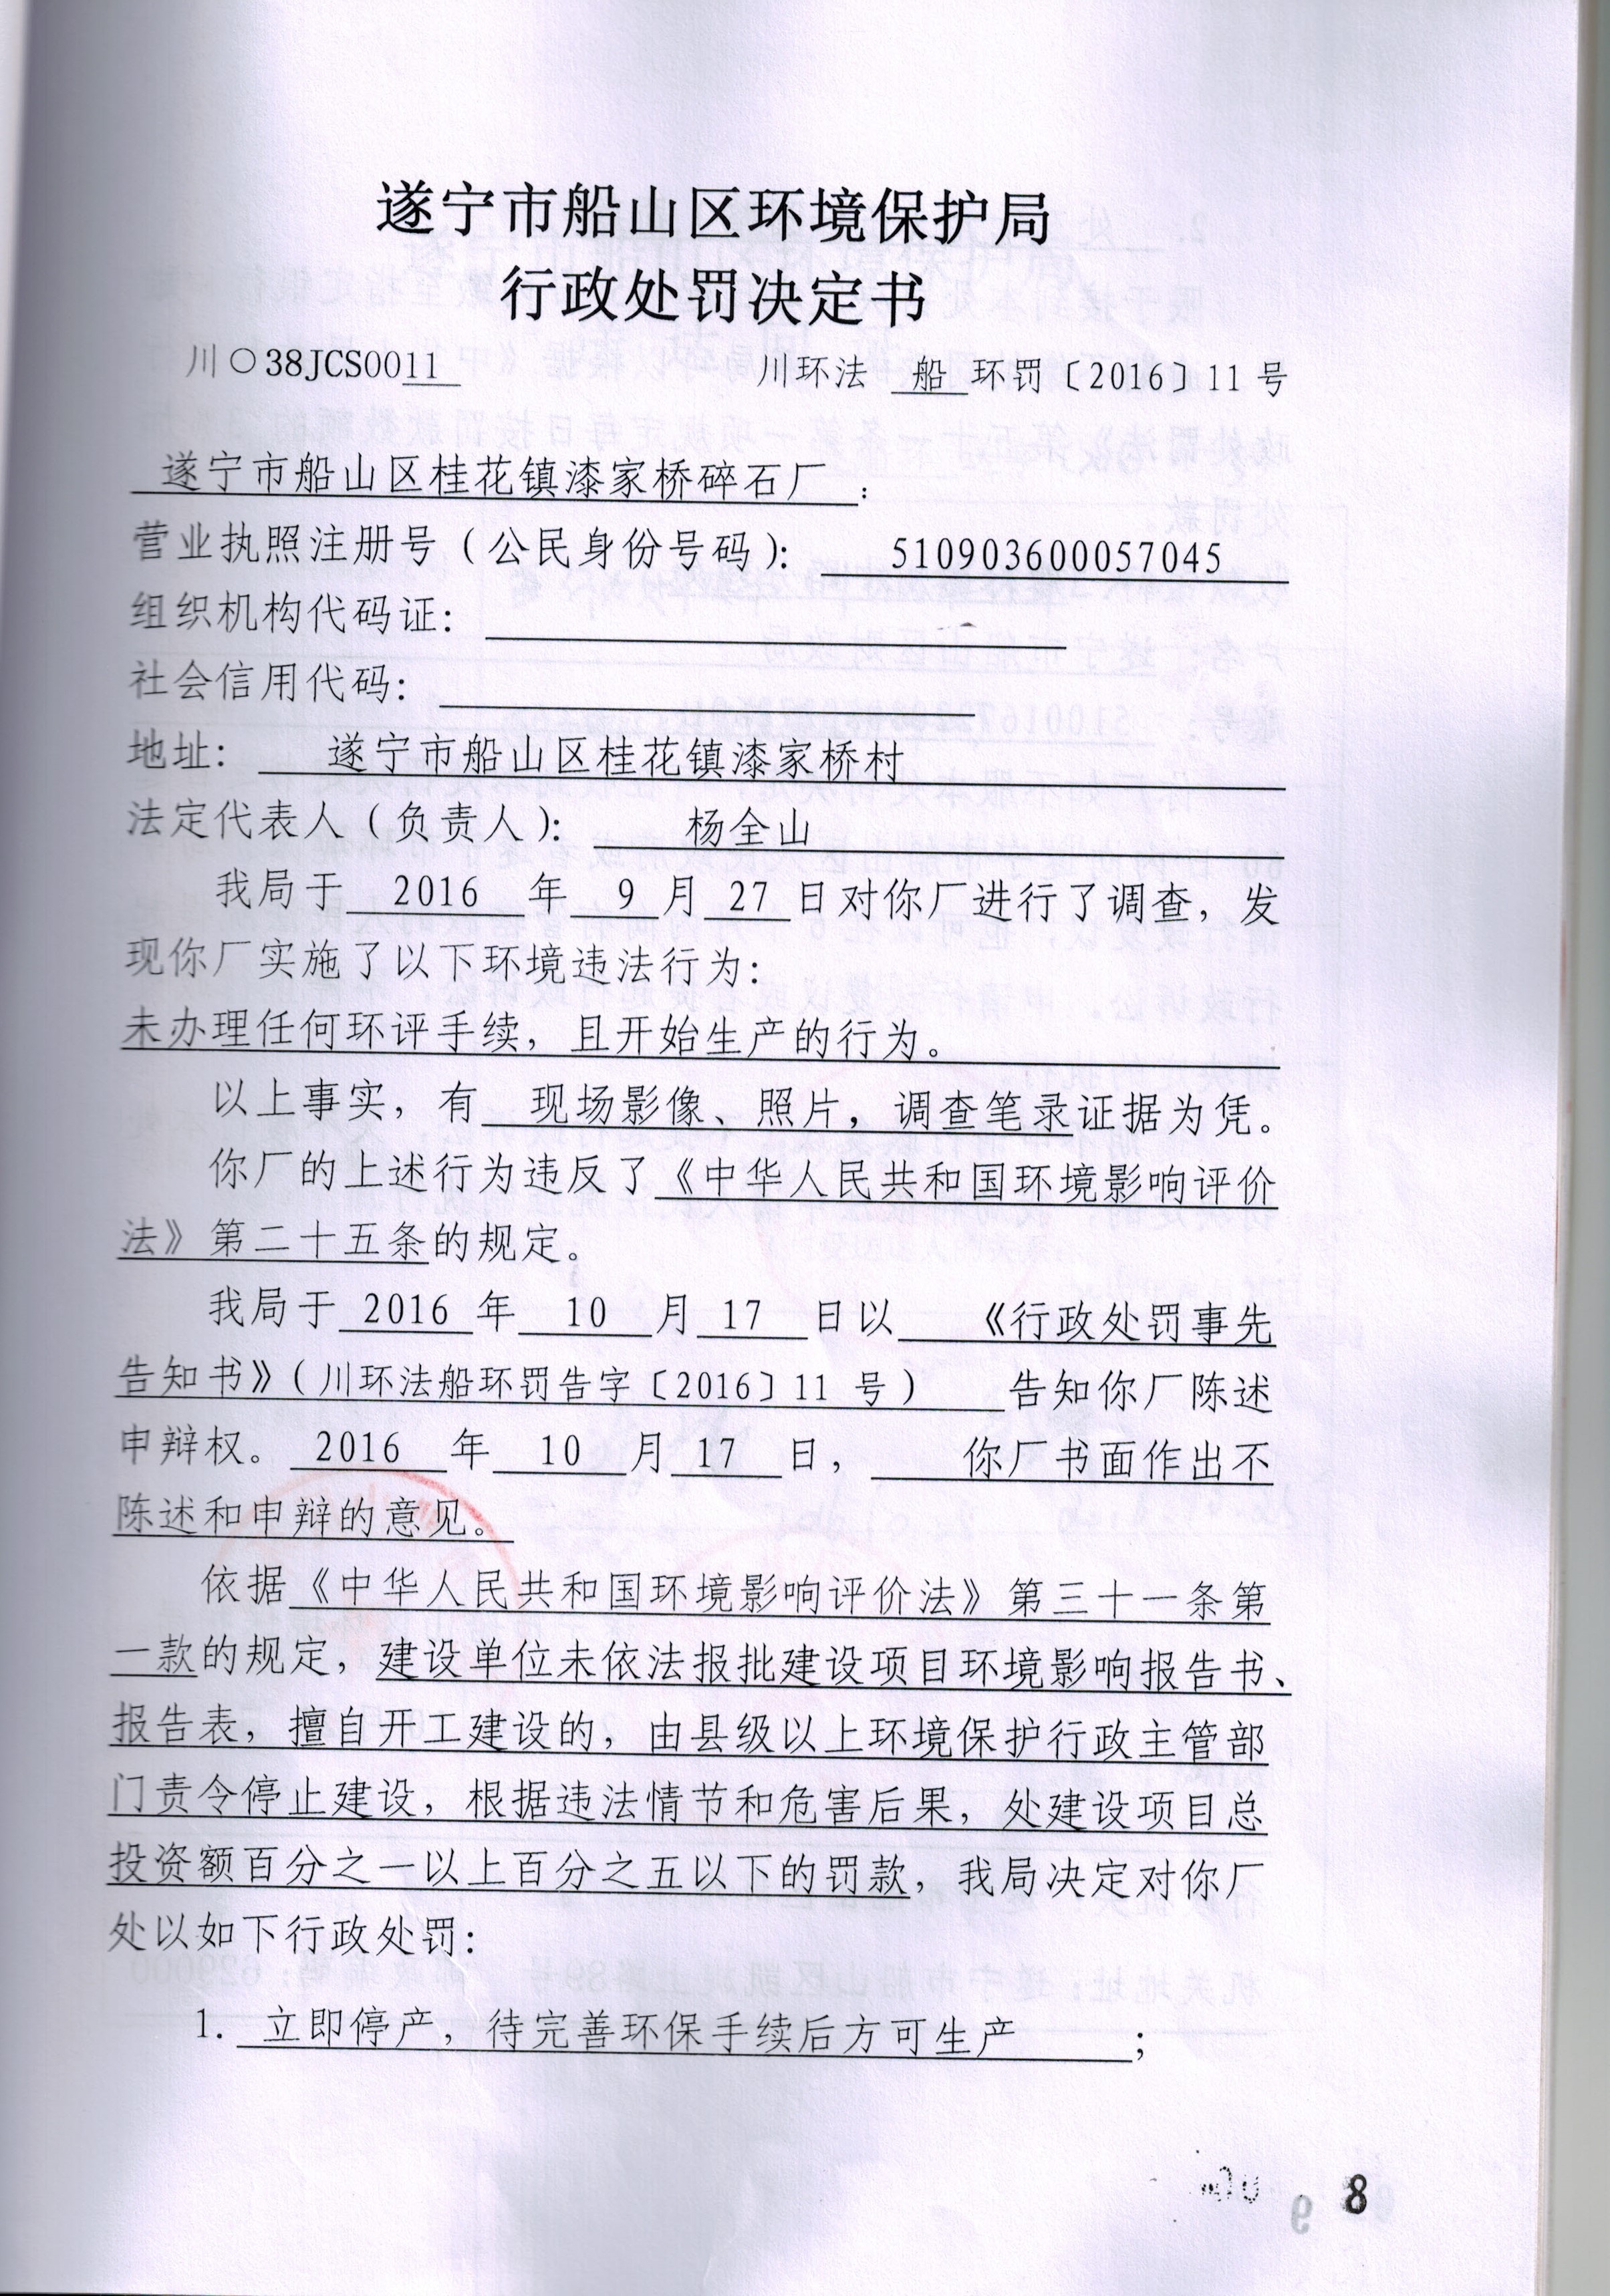 遂宁市船山区环境保护局
行政处罚决定书
川○38JCS0011 川环法 船 环罚〔2016〕11 号
遂宁市船山区桂花镇漆家桥碎石厂：
营业执照注册号（公民身份号码）： 510903600057045
组织机构代码证：
社会信用代码：
地址： 遂宁市船山区桂花镇漆家桥村
法定代表人（负责人）： 杨全山
我局于 2016 年 9 月 27 日对你厂进行了调查，发
现你厂实施了以下环境违法行为：
未办理任何环评手续，且开始生产的行为。
以上事实，有 现场影像、照片，调查笔录证据为凭。
你厂的上述行为违反了《中华人民共和国环境影响评价
法》第二十五条的规定。
我局于 2016 年 10 月 17 日以 《行政处罚事先
告知书》（川环法船环罚告字〔2016〕11 号） 告知你厂陈述
申辩权。 2016 年 10 月 17 日， 你厂书面作出不
陈述和申辩的意见。
依据《中华人民共和国环境影响评价法》第三十一条第
一款的规定，建设单位未依法报批建设项目环境影响报告书、
报告表，擅自开工建设的，由县级以上环境保护行政主管部
门责令停止建设，根据违法情节和危害后果，处建设项目总
投资额百分之一以上百分之五以下的罚款，我局决定对你厂
处以如下行政处罚：
1. 立即停产，待完善环保手续后方可生产 ；
8